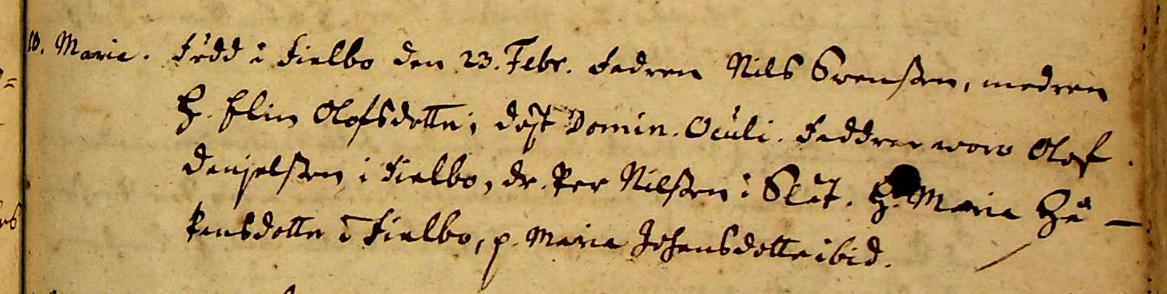 10. Maria. Född i Fielbo den 23. Febr. Fadren Nils Svensson, modren
H. Elin Olofsdotter, döpt Domin. Oculi. Faddrar woro Olof
Danjelsson i Fielbo, dr. Per Nilsson i Slät. H. Maria Hå-
kansdotter i Fielbo, p. Maria Johansdotter ibid.